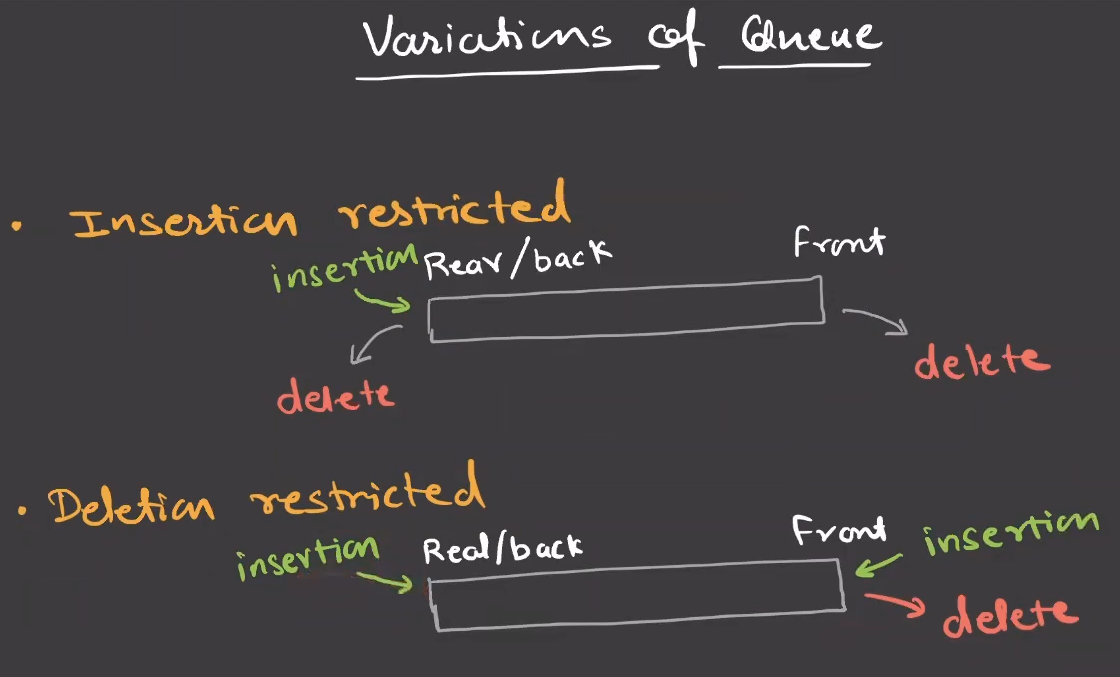 Variations of Queue
• Insertion restricted
insertion Rear/back Front
delete delete
• Deletion restricted
insertion Real/back Front insertion
delete